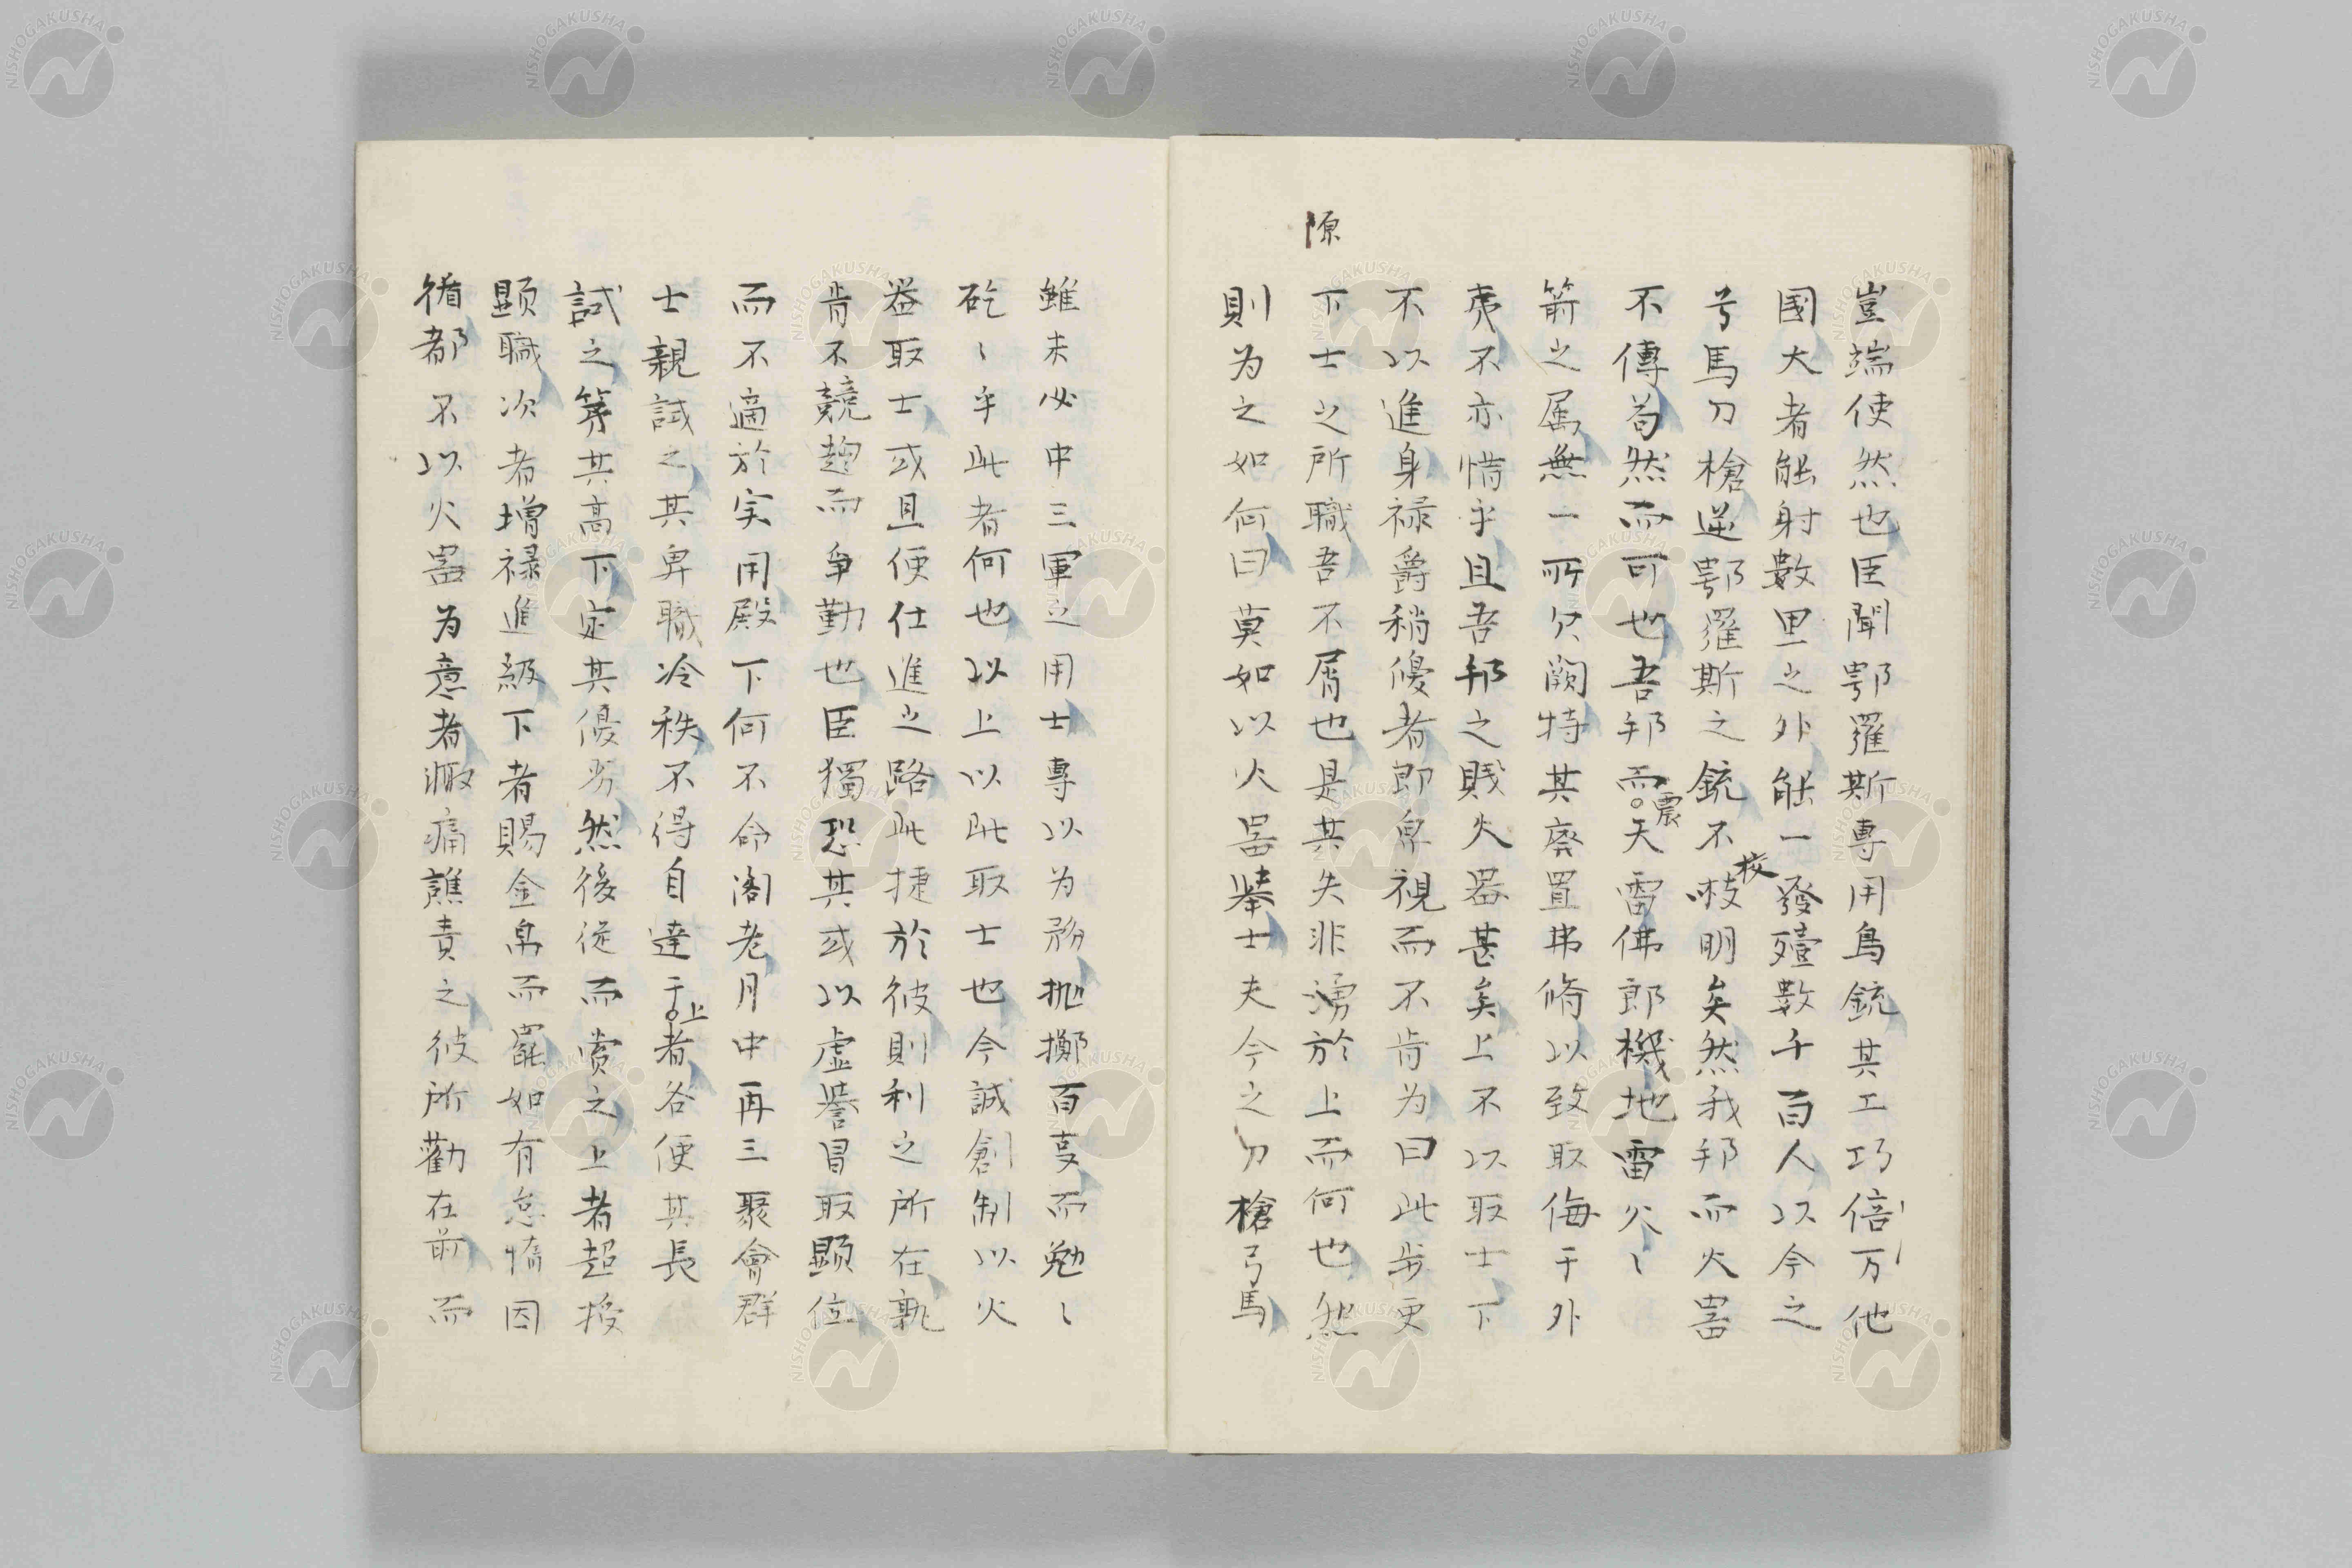 豈端使然也臣聞鄂羅斯專用鳥銃其工巧倍万他
國大者能射數里之外能一發殪數千百人以今之
弓馬刀槍逆鄂羅斯之銃不啎明矣然我邦而火器
校
不傳苟然而可也吾邦而天雷佛郎機地雷火〻
震
箭之属無一所欠闕特其廃置弗脩以致取侮于外
夷不亦惜乎且吾邦之賤火器甚矣上不以取士下
不以進身禄爵稍優者即卑視而不肯为曰此步更
下士之所職吾不屑也是其失非湧於上而何也然
原
則为之如何曰莫如以火器舉士夫今之刀槍弓馬
雖未必中三軍之用士專以为務抛擲百支而勉〻
矻〻乎此者何也以上以此取士也今誠創制以火
器取士或且便仕進之路此捷於彼則利之所在孰
肯不競趨而争勤也臣獨恐其或以虚譽冒取顕位
而不適於实用殿下何不命閣老月中再三聚會群
士親試之其卑職冷秩不得自達于者各便其長
上
試之第其高下定其優劣然後従而賞之上者超授
顕職次者増禄進級下者賜金帛而罷如有怠惰因
循都不以火器为意者厳痛譙責之彼所勸在前而